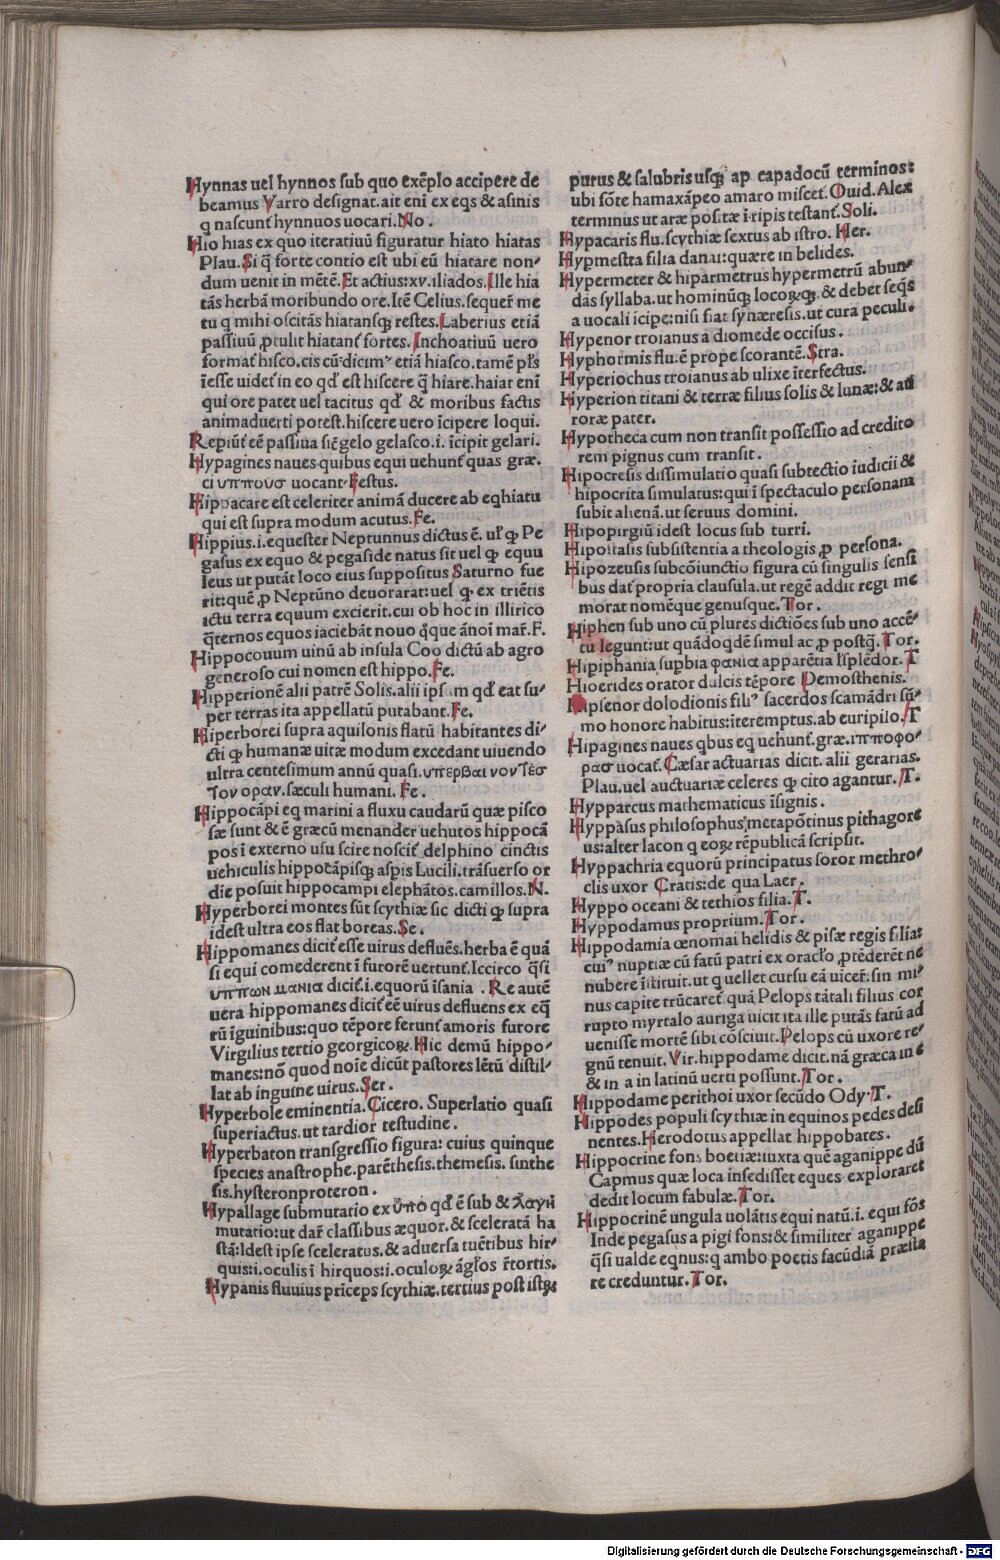 Hynnas uel hynnos sub quo exẽplo accipere de
beamus Varro designat. ait eni ex eqs & asinis
q nascunt hynnuos uocari. No.
Hio hias ex quo iteratiuũ figuratur hiato hiatas
Plau. Si q̃ forte contio est ubi eũ hiatare non-
dum uenit in mẽtẽ. Et actius: xv. iliados. Ille hia
tãs herbã moribundo ore. Itẽ Celius. sequer me
tu q mihi oscitãs hiatansq; restes. Laberius etiã
passiuũ ꝓtulit hiatant fortes. Inchoatiuũ uero
format hisco. cis cũ dicimꝰ etiã hiasco. tamẽ pl's
ĩesse uidet in eo qd est hiscere q̃ hiare. haiat eni
qui ore patet uel tacitus qd & moribus factis
animaduerti potest. hiscere uero ĩcipere loqui.
Repiũt eẽ passiua sic gelo gelasco. i. ĩcipit gelari.
Hypagines naues quibus equi uehunt quas græ.
ci υππουσ uocant. Festus.
Hippacare est celeriter animã ducere ab eqhiatu
qui est supra modum acutus. Fe.
Hippius. i. equester Neptunnus dictus ẽ. ul' ꝙ Pe
gasus ex equo & pegaside natus sit uel ꝙ equu
leus ut putãt loco eius suppositus Saturno fue
rit: quẽ ꝓ Neptũno deuorarat: uel ꝙ ex triẽtis
ictu terra equum excierit. cui ob hoc in illirico
q̃ternos equos iaciebãt nouo q̃que ãnoi mar. F.
Hippocouum uinũ ab insula Coo dictũ ab agro
generoso cui nomen est hippo. Fe.
Hipperionẽ alii patrẽ Solis. alii ipsum qd eat su-
per terras ita appellatũ putabant. Fe.
Hiperborei supra aquilonis flatũ habitantes di-
cti ꝙ humanæ uitæ modum excedant uiuendo
ultra centesimum annũ quasi. υπερβαινοντεσ
τον οραν. sæculi humani. Fe.
Hippocãpi eq marini a fluxu caudarũ quæ pisco
sæ sunt & ẽ græcũ menander uehutos hippocã
pos ĩ externo usu scire noscit delphino cinctis
uehiculis hippocãpisq; aspis Lucili. trãsuerso or
die posuit hippocampi elephãtos. camillos. N.
Hyperborei montes sũt scythiæ sic dicti ꝙ supra
idest ultra eos flat boreas. Se.
Hippomanes dicit esse uirus defluẽs. herba ẽ quã
si equi comederent ĩ furorẽ uertunt. Iccirco q̃si
υππων μανια dicit. i. equorũ ĩsania. Re autẽ
uera hippomanes dicit eẽ uirus defluens ex eq
rũ ĩguinibus: quo tẽpore ferunt amoris furore
Virgilius tertio georgicoꝝ. Hic demũ hippo-
manes: nõ quod noie dicũt pastores lẽtũ distil-
lat ab inguine uirus. Ser.
Hyperbole eminentia. Cicero. Superlatio quasi
superiactus. ut tardior testudine.
Hyperbaton transgressio figura: cuius quinque
species anastrophe. parẽthesis. themesis. sinthe
sis. hysteronproteron.
Hypallage submutatio ex ὑπο qd ẽ sub & λαγη
mutatio: ut dar classibus æquor. & sceleratã ha
stã: Idest ipse sceleratus. & aduersa tuẽtibus hir-
quis: i. oculis ĩ hirquos: i. oculoꝝ ãglos rtortis.
Hypanis fluuius priceps scythiæ. tertius post istꝝ
purus & salubris usq; ap capadocũ terminos:
ubi fõte hamaxãpeo amaro miscet. Ouid. Alex
terminus ut aræ positæ i ripis testant. Soli.
Hypacaris flu. scythiæ sextus ab istro. Her.
Hypmestra filia danai: quære in belides.
Hypermeter & hiparmetrus hypermetrũ abun-
das syllaba. ut hominũq; locoꝝq;. & debet seqs
a uocali icipe: nisi fiat synæresis. ut cura peculi.
Hypenor troianus a diomede occisus.
Hyphormis flu. ẽ prope scorantẽ. Stra.
Hyperiochus troianus ab ulixe ĩterfectus.
Hyperion titani & terræ filius solis & lunæ: & au
roræ pater.
Hypotheca cum non transit possessio ad credito
rem pignus cum transit.
Hipocresis dissimulatio quasi subtectio iudicii &
hipocrita simulatus: qui ĩ spectaculo personam
subit alienã. ut seruus domini.
Hipopirgiũ idest locus sub turri.
Hipostasis subsistentia a theologis ꝓ persona.
Hipozeusis subcõiunctio figura cũ singulis sensi
bus dat propria clausula. ut regẽ addit regi me
morat nomẽque genusque. Tor.
Hiphen sub uno cũ plures dictiões sub uno accẽ-
tu leguntur: ut quãdoqdẽ simul ac ꝓ postq̃. Tor.
Hipiphania supbia φανια apparẽtia l'splẽdor. T
Hioerides orator dulcis tẽpore Demosthenis.
Hipsẽnor dolodionis filiꝰ sacerdos scamãdri sũ-
mo honore habitus: iteremptus. ab euripilo. T
Hipagines naues qbus eq uehunt. græ. ιππoφo-
ρασ uocat. Cæsar actuarias dicit. alii gerarias.
Plau. uel auctuariæ celeres ꝙ cito agantur. T.
Hypparcus mathematicus ĩsignis.
Hyppasus philosophus metapõtinus pithagore
us: alter lacon q eoꝝ rẽpublicã scripsit.
Hyppachria equorũ principatus soror methro-
clis uxor Cratis: de qua Laer.
Hyppo oceani & tethios filia. T.
Hyppodamus proprium. Tor.
Hippodamia œnomai helidis & pisæ regis filia:
cuiꝰ nuptiæ cũ fatũ patri ex oraclo ꝓtẽderẽt ne
nubere ĩstituit. ut q uellet cursu eã uicer: sin mi-
nus capite trũcaret. quã Pelops tãtali filius cor
rupto myrtalo auriga uicit ita ille putãs fatũ ad
uenisse mortẽ sibi cõsciuit. Pelops cũ uxore re-
gnũ tenuit. Vir. hippodame dicit. nã græca in e
& in a in latinũ uerti possunt. Tor.
Hippodame perithoi uxor secũdo Ody. T.
Hippodes populi scythiæ in equinos pedes desi
nentes. Hierodotus appellat hippobates.
Hippocrine fons boetiæ: iuxta quẽ aganippe dũ
Capmus quæ loca insedisset eques exploraret
dedit locum fabulæ. Tor.
Hippocrinẽ ungula uolãtis equi natũ. i. equi fõs
Inde pegasus a pigi fons: & similiter aganippe
q̃si ualde eqnus: q ambo poetis facũdiã præsta
re creduntur. Tor.
Digitalisierung gefördert durch die Deutsche Forschungsgemeinschaft - DFG